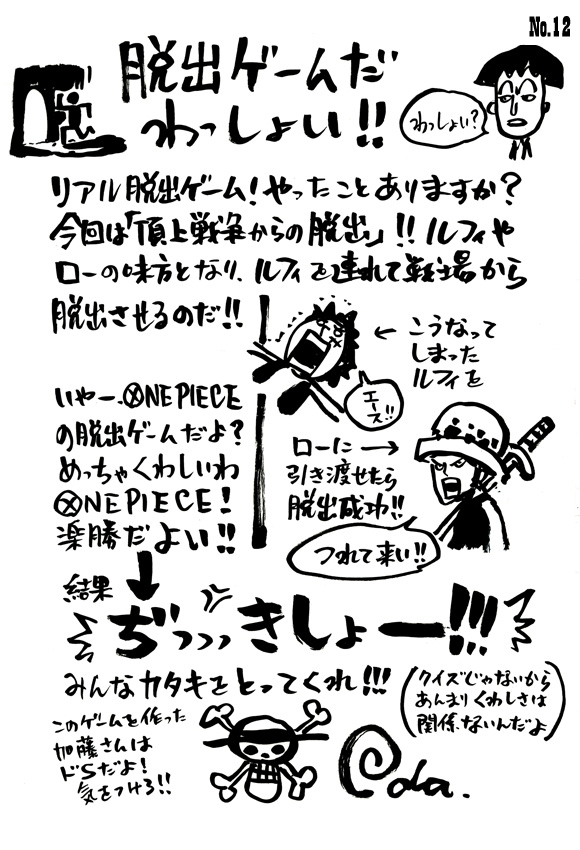 No.12
脱出ゲームだ
わっしょい!!
わっしょい?
リアル脱出ゲーム!やったことありますか?
今回は「頂上戦争からの脱出」!!ルフィや
ローの味方となり、ルフィを連れて戦場から
脱出させるのだ!!
エース!!
←こうなって
しまった
ルフィを
いやー、ONE PIECE
の脱出ゲームだよ?
めっちゃくわしいわ
ONE PIECE!
楽勝だよい!!
ローに→
引き渡せたら
脱出成功!!
つれて来い!!
結果
ぢっっっきしょー!!!
みんなカタキをとってくれ!!!
(クイズじゃないから
あんまりくわしさは
関係ないんだよ)
このゲームを作った
加藤さんは
ドSだよ!
気をつけろ!!
Oda.